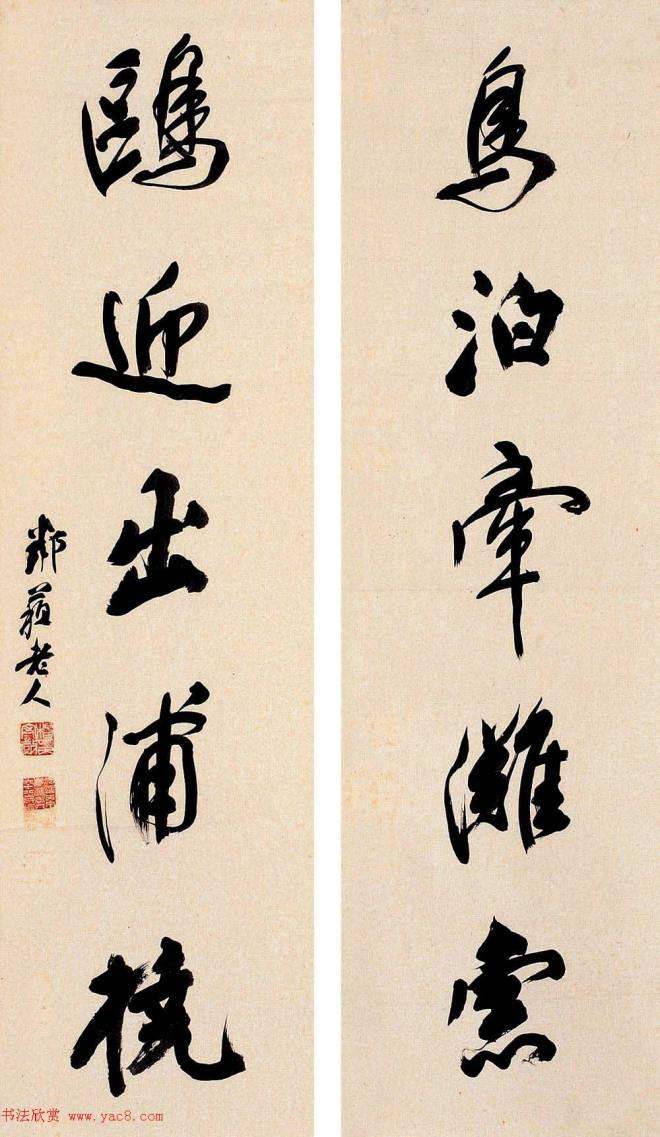 鳥泊牽灘索
鷗迎出浦橈
鄰蘓老人
书法欣赏 www.yac8.com